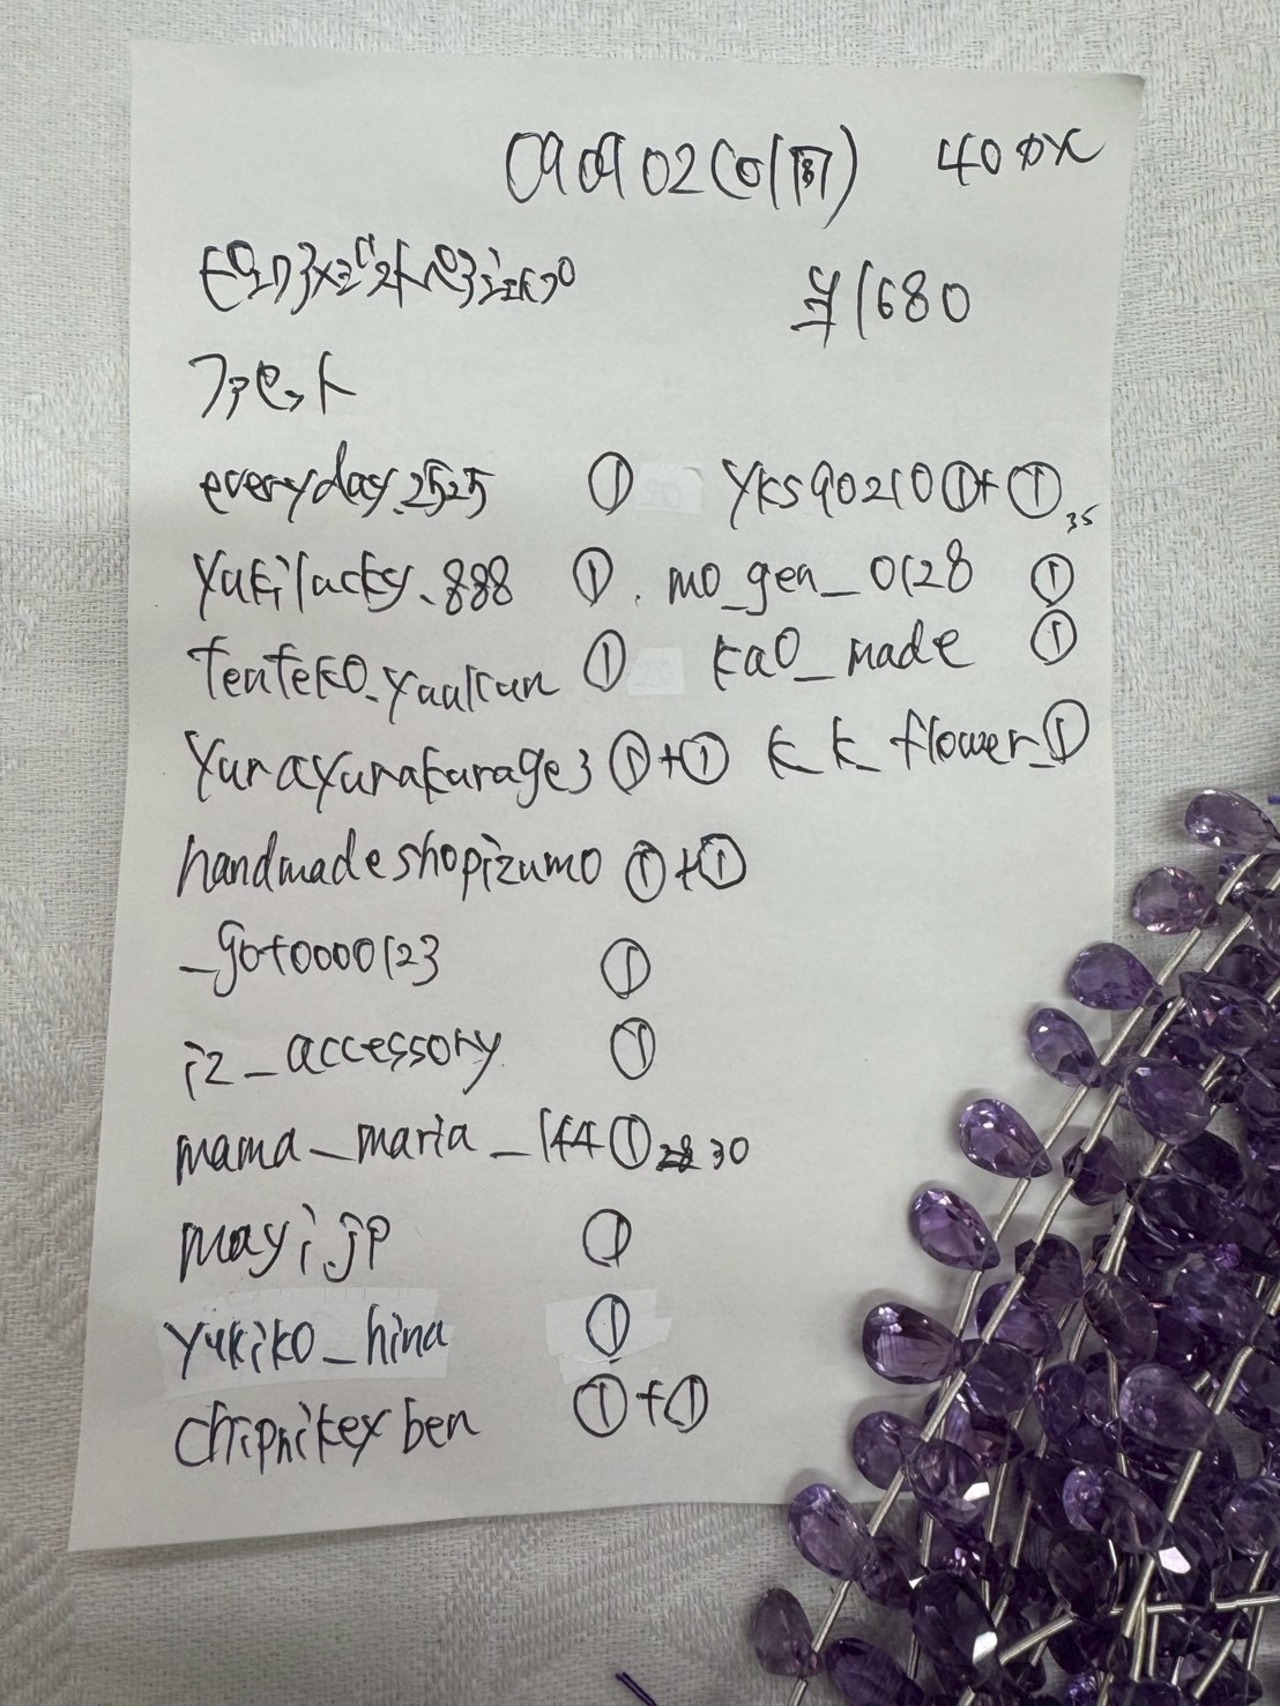 090902 40
¥1680
ファセット
everyday.2525 ① yks90210 ①+① 35
yukilucky.888 ① mo_gen_0128 ①
tenteko_yuukun ① kao_made ①
yurayurakurage3 ①+① k_k_flower_ ①
handmadeshopizumo ①+①
_goto0000123 ①
iz_accessory ①
mama_maria_144 ① 30
mayi.jp ①
yukiko_hina ①
①+①